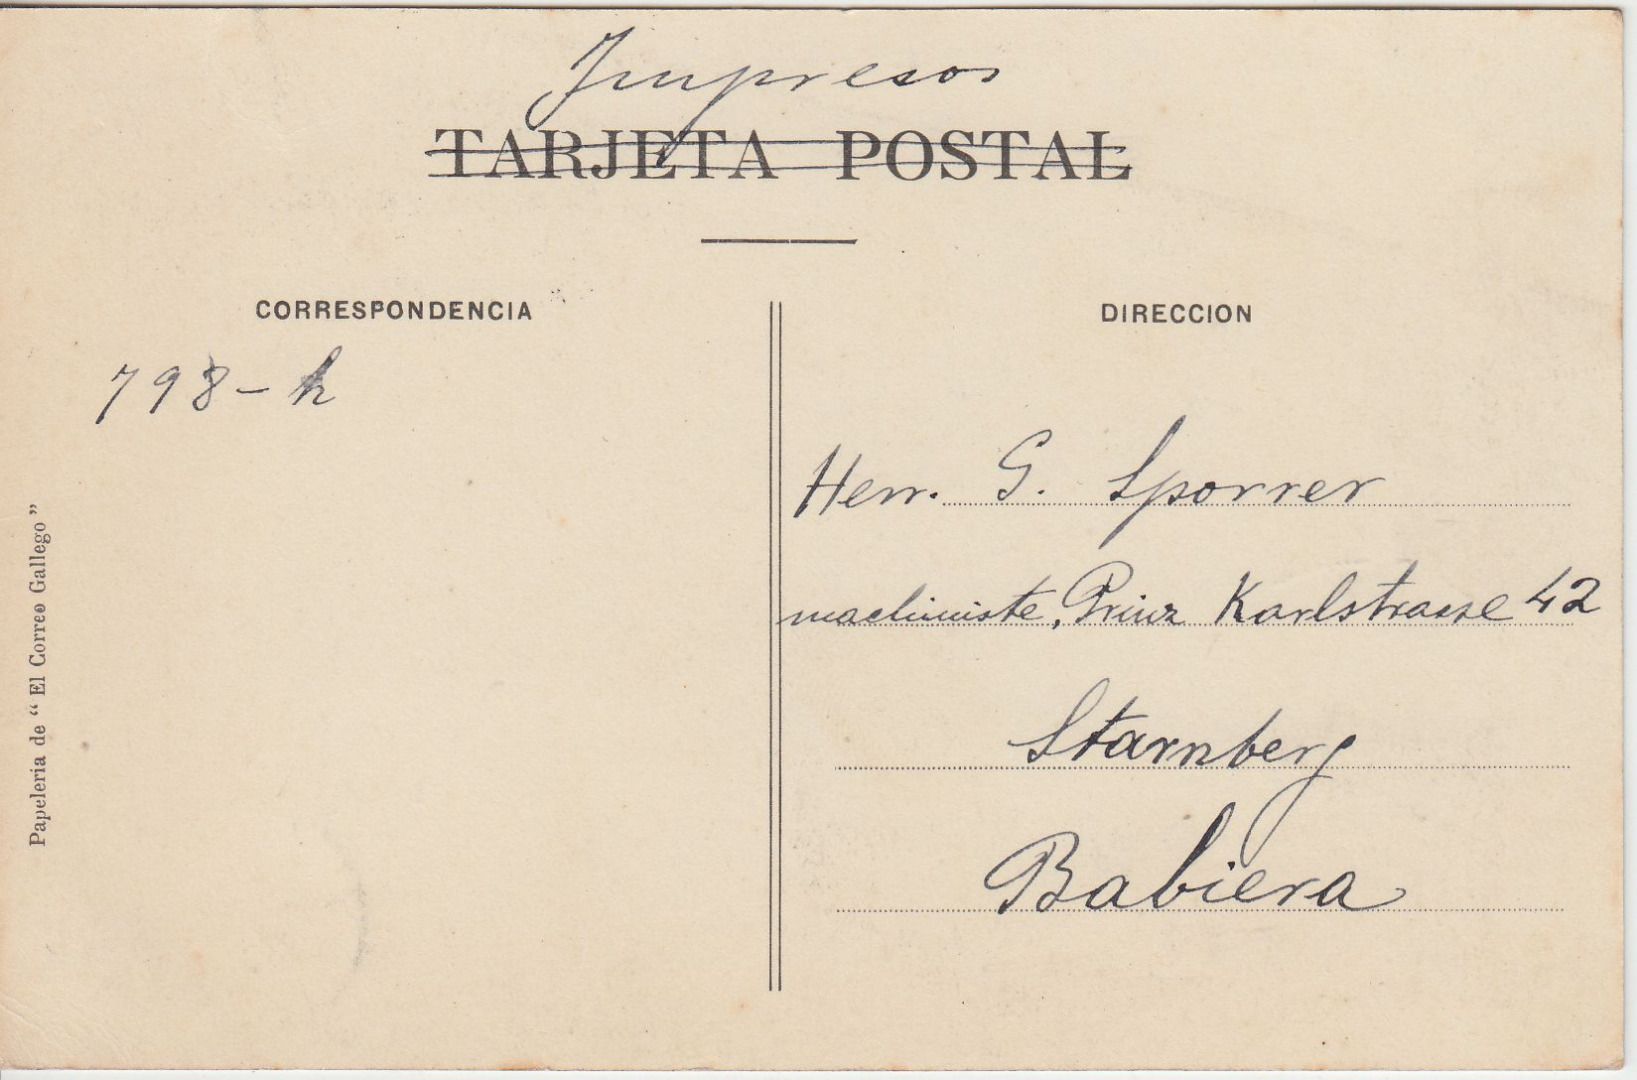 Impresos
TARJETA POSTAL
CORRESPONDENCIA
798-h
DIRECCION
Herr. G. Sporrer
machiniste, Prinz Karlstrasse 42
Starnberg
Babiera
Papeleria de “El Correo Gallego”